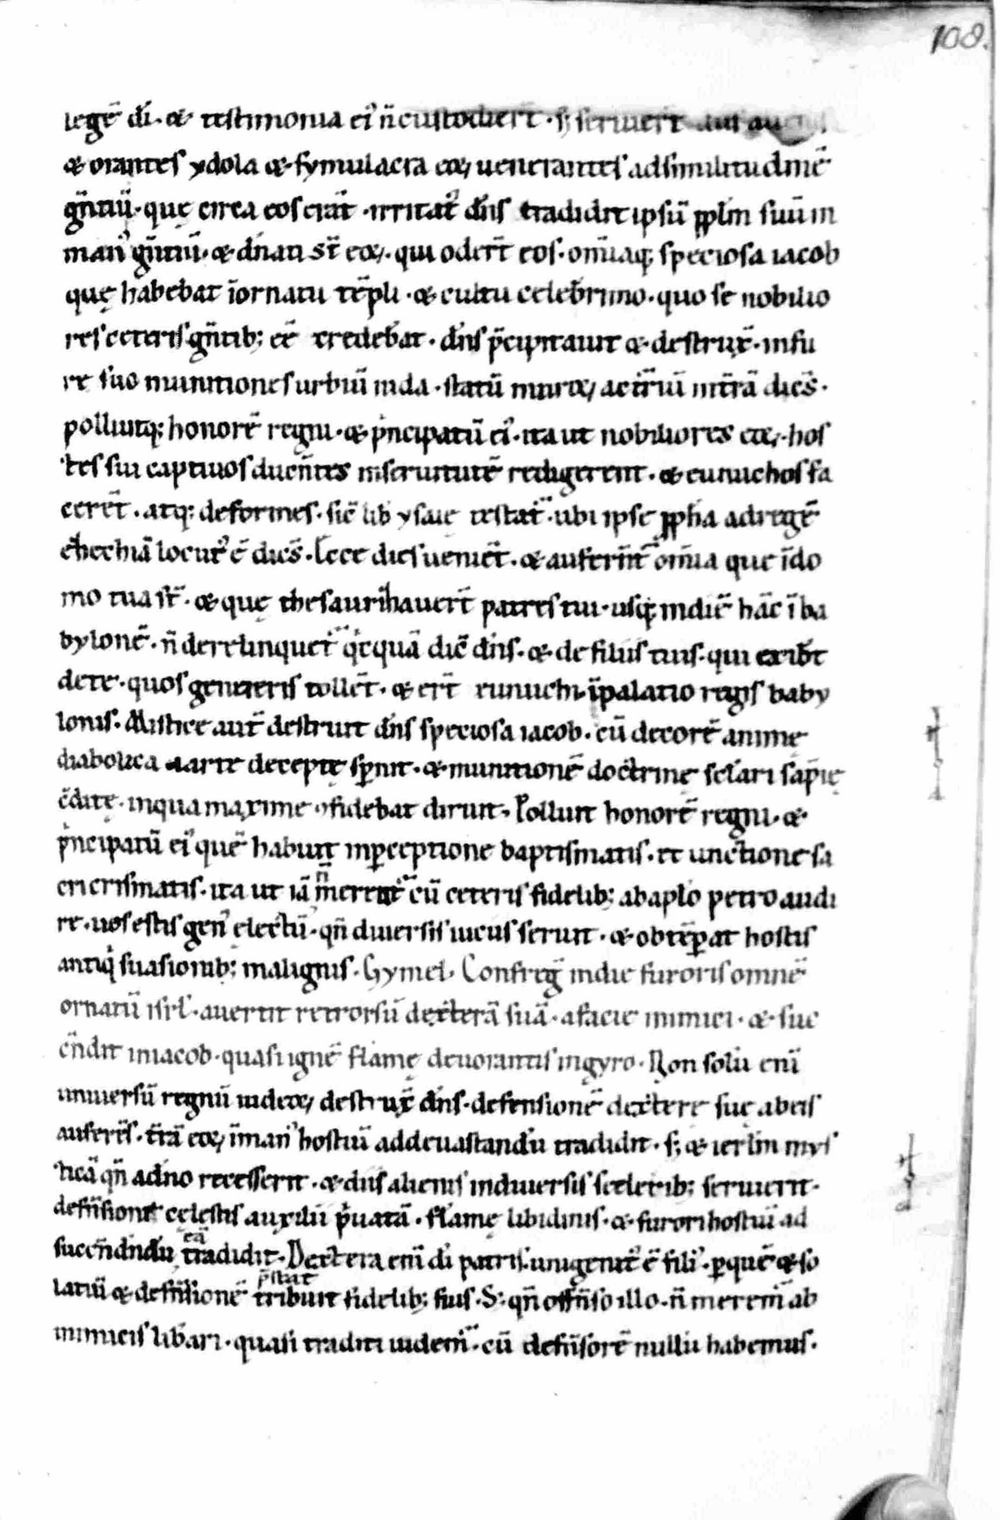 108.
legē dī · & testimonia ei᾽ n̄ custodiert̄ · s; seruiert̄
& orantes ydola & symulacra eoꝝ uenerantes ad similitudinē
gn̄tiū · quę circa eos erāt · irritat᾽ dn̄s tradidit ipsū ppl̄m suū in
man᾽ gn̄tiū · & dn̄ati st̄ eoꝝ · qui odert̄ eos · om̄iaq; speciosa iacob
quę habebat īornatu tēpli · & cultu celeberrimo · quo se nobilio
res ceteris gn̄tib; eē credebat · dn̄s p̄cipitauit & destrux̄ · in fu
re suo munitiones urbiū iuda · statū muroꝝ ac tr̄riū int̄rā dic̄s ·
polluitq; honorē regni · & p̄ncipatū ei᾽ · ita ut nobiliores eoꝝ · hos
tes sui captiuos ducn̄tes in seruitutē redigerent · & eunuchos fa
cerēt · atq; deformes · sic̄ lib̄ ysaie testat᾽ · ubi ipse ꝓph̄a ad regē
ezechiā locut᾽ ē dic̄s · Ecce dies uenient̄ · & auferēnt᾽ om̄ia que ī do
mo tua st̄ · & quę thesaurizauert̄ patres tui · usq; in diē hāc ī ba
bylonē · n̄ derelinquet᾽ qicquā dic̄ dn̄s · & de filiis tuis · qui exibt̄
de te · quos genueris tollēt · & ert̄ eunuchi ī palatio regis baby
lonis · Mistice aut̄ destruit dn̄s speciosa iacob · cū decorē anime
diabolica arte deceptę spernit · & munitionē doctrine sc̄lari sapīe
c̄dite · in qua maxime ꝯfidebat diruit · Polluit honorē regni · &
p̄ncipatū ei᾽ quē habuit in ꝑceptione baptismatis · et unctione sa
cri crismatis · ita ut iā n̄ mereat᾽ cū ceteris fidelib; ab aplo petro audi
re · uos estis gen᾽ electū · qn̄ diuersis uiciis seruit · & obtēꝑat hostis
antiqi suasionib; malignis · Gymel · Confregit̄ in die furoris omnē
ornatū isrl̄ · auertit retrorsū dexterā suā · a facie inimici · & suc
cn̄dit in iacob · quasi ignē flamę deuorantis in gyro · Non solū enī
uniuersū regnū iudeoꝝ destrux̄ dn̄s · defensionē dextere sue ab eis
auferēs · tr̄ā eoꝝ ī man᾽ hostiū ad deuastandū tradidit · s; & ierlm̄ mys
ticā qn̄ ad n̄o recesserit · & diis alienis in diuersis scelerib; seruierit ·
defn̄sione celestis auxilii p̄uatā · flamę libidinis · & furori hostiū ad
succn̄dndū eā tradidit · Dextera enī dī patris · unigenit᾽ ē fili᾽ · ꝑ quē & so
latiū & defn̄sionē p̄stat tribuit fidelib; suis · S; qn̄ offn̄so illo · n̄ merem᾽ ab
inimicis libari · quasi traditi uidem᾽ · cū defn̄sorē nullū habemus ·